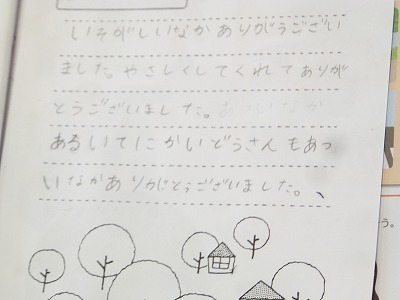 いそがしいなかありがうござい
ました。やさしくしてくれてありが
とうございました。あついなか
あるいてにかいどうさんもあっ
いなかありがとうございました。、
う。